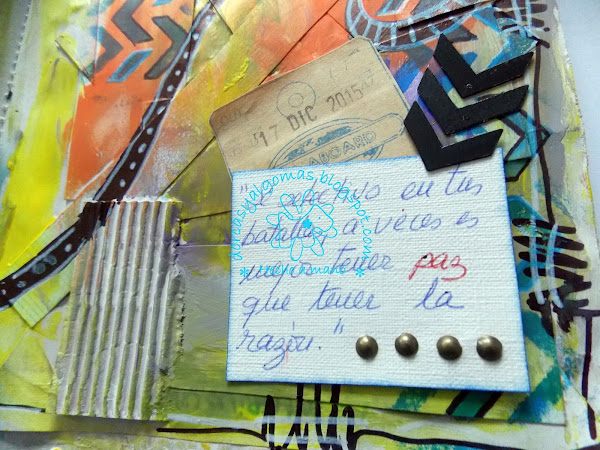 17 DIC 2015
ABOARD
"Se selectivo en tus
batallas, a veces es
mejor tener paz
que tener la
razón."